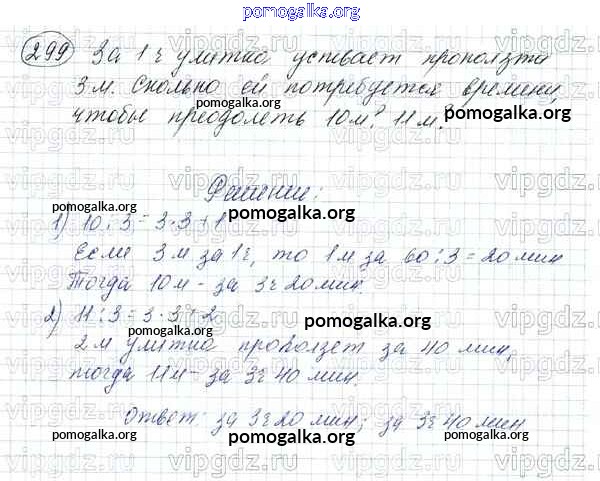 pomogalka.org
299 За 1 ч улитка успевает проползти
3 м. Сколько ей потребуется времени,
чтобы преодолеть 10м? 11м?
pomogalka.org
Решение:
pomogalka.org
1) 10 : 3 = 3 · 3 + 1
Если 3 м за 1 ч, то 1 м за 60 : 3 = 20 мин
Тогда 10 м - за 3 ч 20 мин.
2) 11 : 3 = 3 · 3 + 2
pomogalka.org pomogalka.org
2 м улитка проползет за 40 мин,
тогда 11 м - за 3 ч 40 мин.
pomogalka.org
Ответ: за 3 ч 20 мин; за 3 ч 40 мин
pomogalka.org pomogalka.org pomogalka.org
vipgdz.ru vipgdz.ru vipgdz.ru